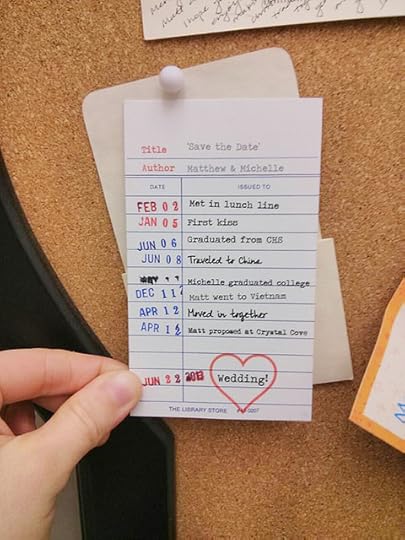 Title 'Save the Date'
Author Matthew & Michelle
DATE ISSUED TO
FEB 02 Met in lunch line
JAN 05 First kiss
JUN 06 Graduated from CHS
JUN 08 Traveled to China
Michelle graduated college
DEC 11 Matt went to Vietnam
APR 12 Moved in together
APR Matt proposed at Crystal Cove
JUN 22 2013 Wedding!
THE LIBRARY STORE